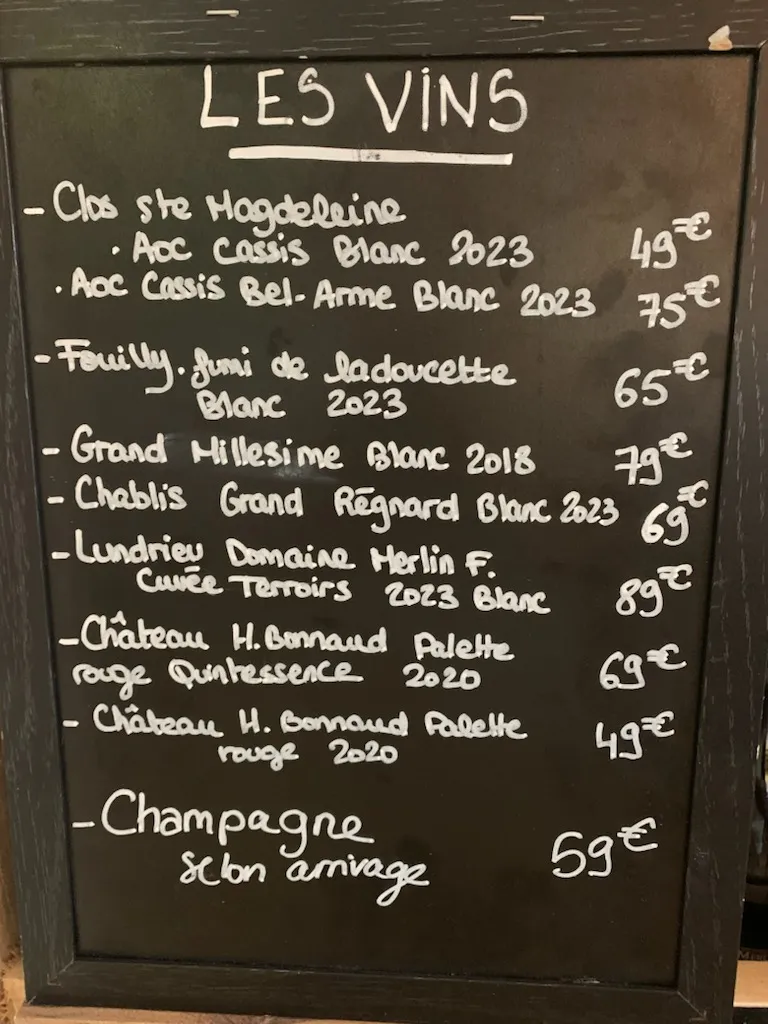 LES VINS
- Clos ste Magdeleine
. Aoc Cassis Blanc 2023 49€
. Aoc Cassis Bel-Arme Blanc 2023 75€
- Fouilly. fumi de ladoucette 65€
Blanc 2023
- Grand Millesime Blanc 2018 79€
- Chablis Grand Régnard Blanc 2023 69€
- Lundrieu Domaine Merlin F.
Cuvée Terroirs 2023 Blanc 89€
- Château H. Bonnaud Palette
rouge Quintessence 2020 69€
- Château H. Bonnaud Palette 49€
rouge 2020
- Champagne 59€
Selon arrivage